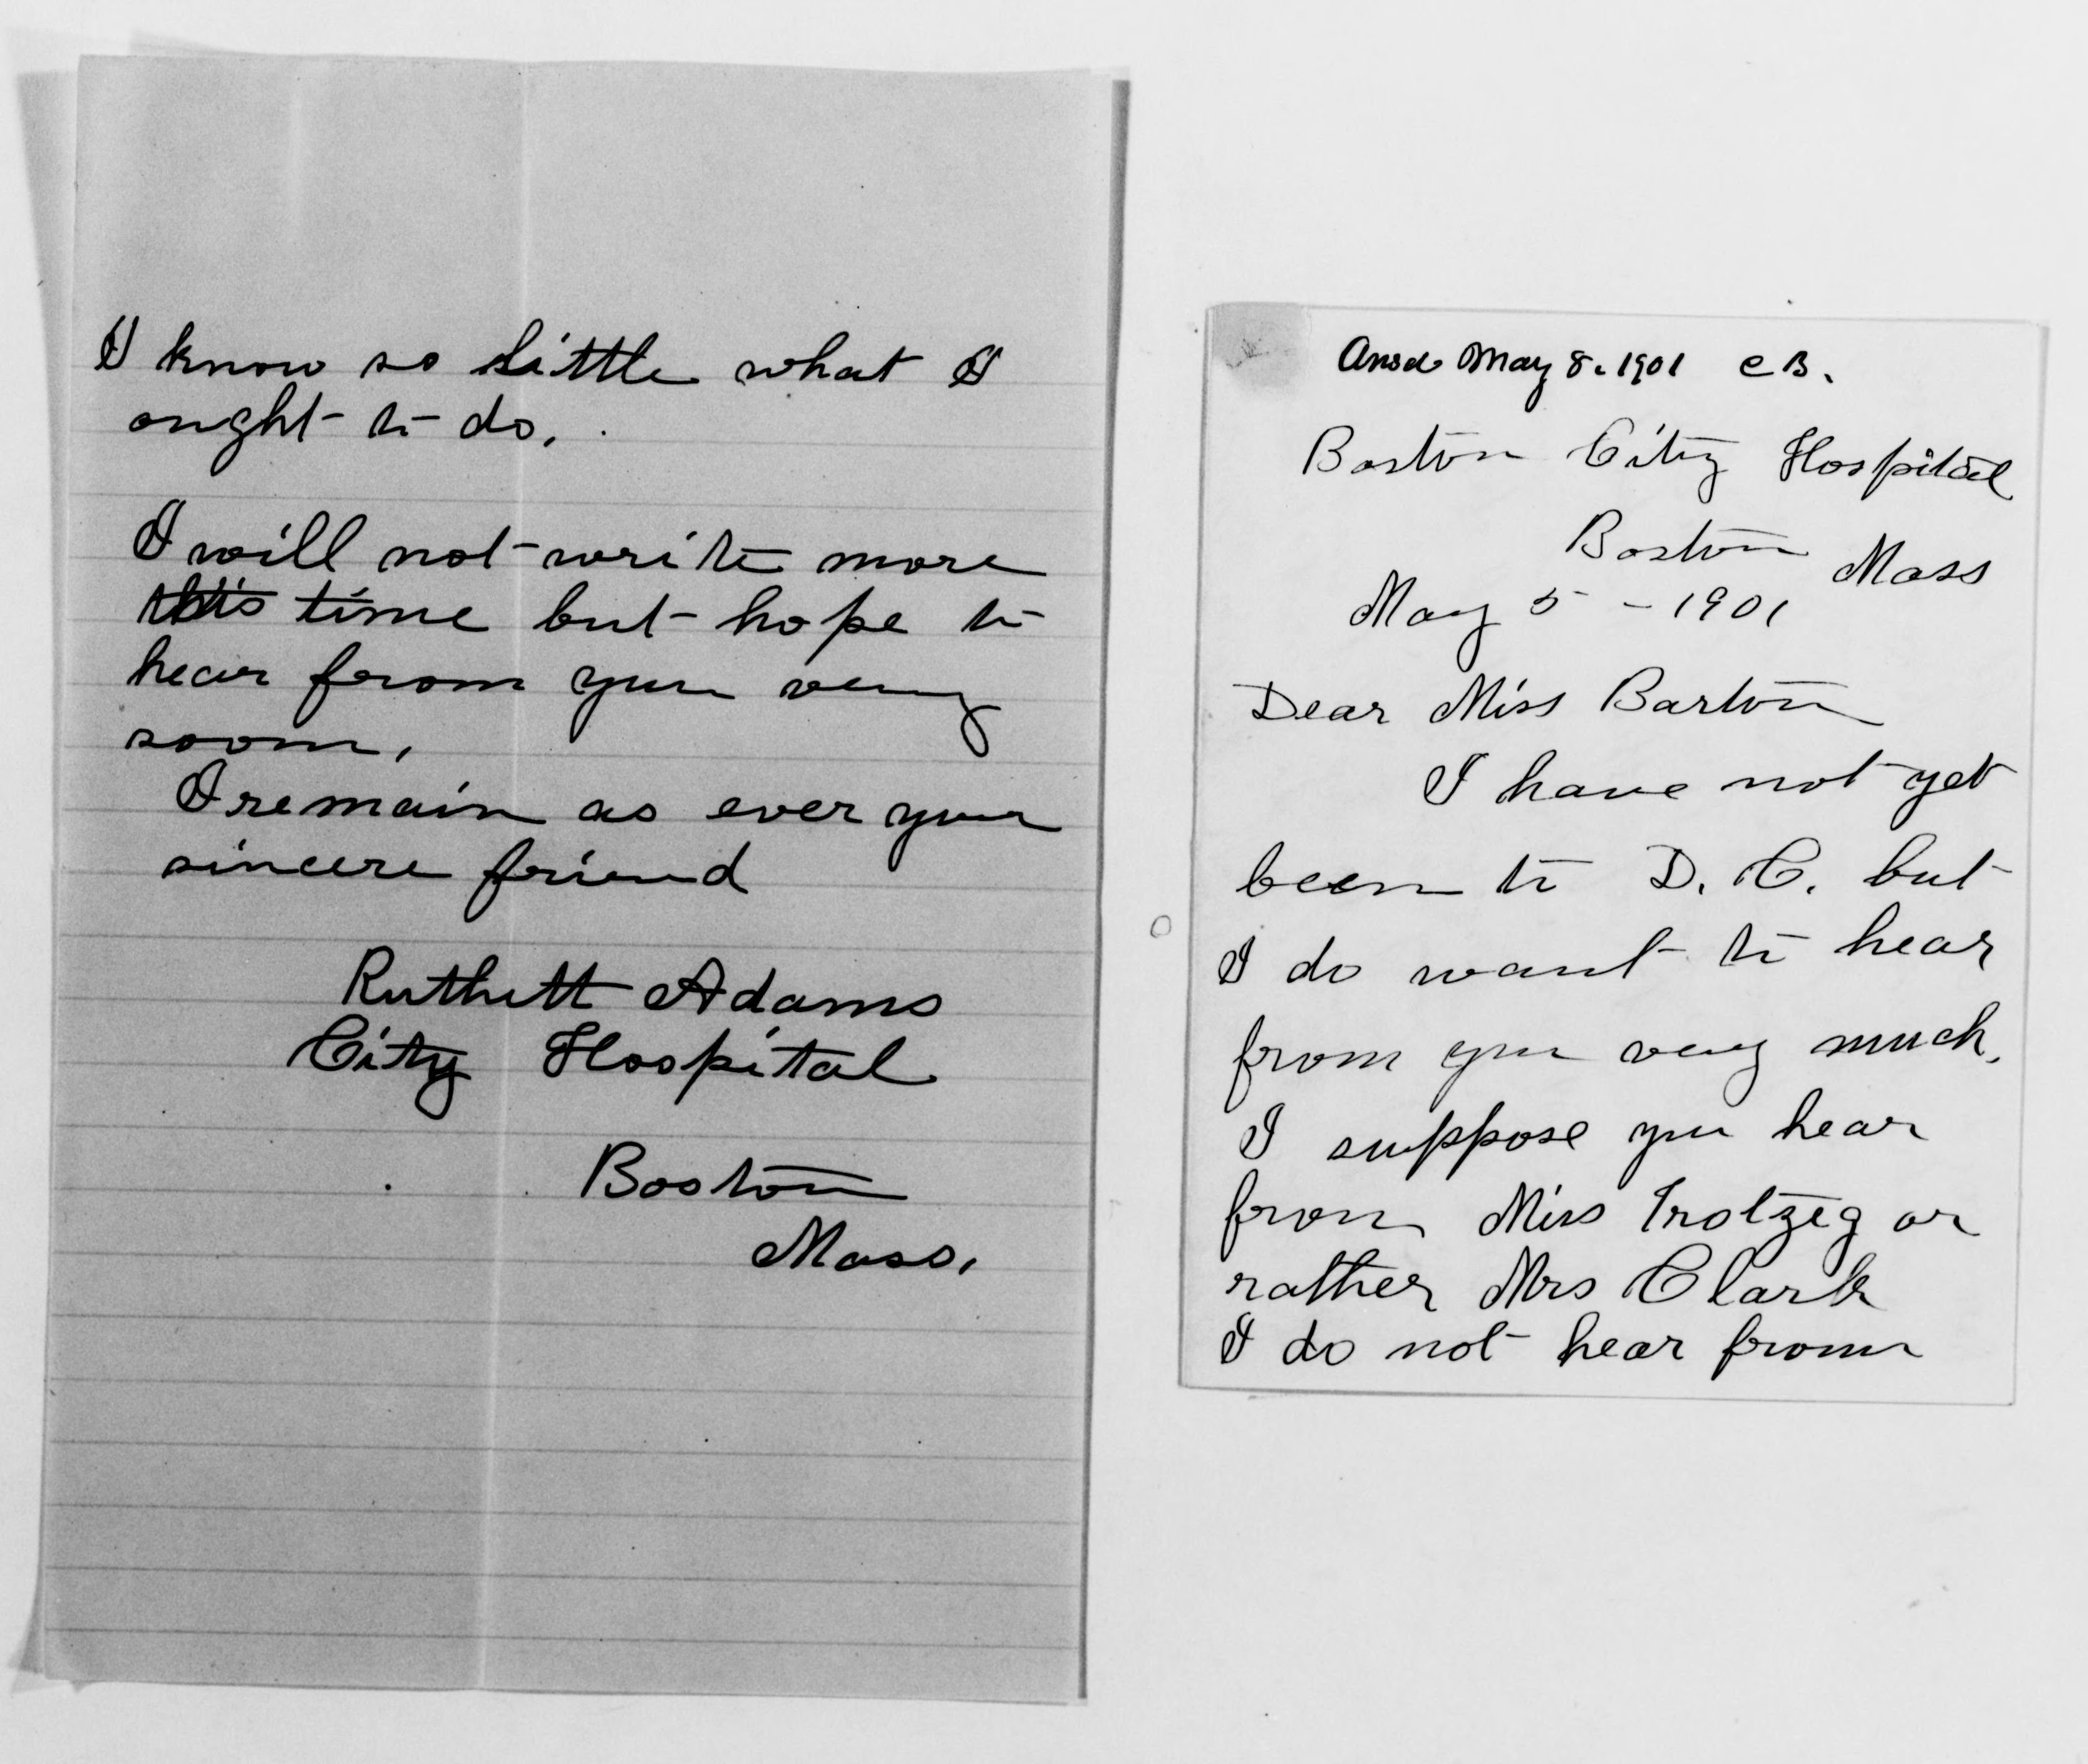 I know so little what I
ought to do.
I will not write more
this time but hope to
hear from you very
soon.
I remain as ever your
sincere friend
Ruthett Adams
City Hospital
Boston
Mass.
Ansd May 8. 1901 CB.
Boston City Hospital
Boston Mass
May 5 - 1901
Dear Miss Barton
I have not yet
been to D. C. but
I do want to hear
from you very much.
I suppose you hear
from Miss Trotzeg or
rather Mrs Clark
I do not hear from